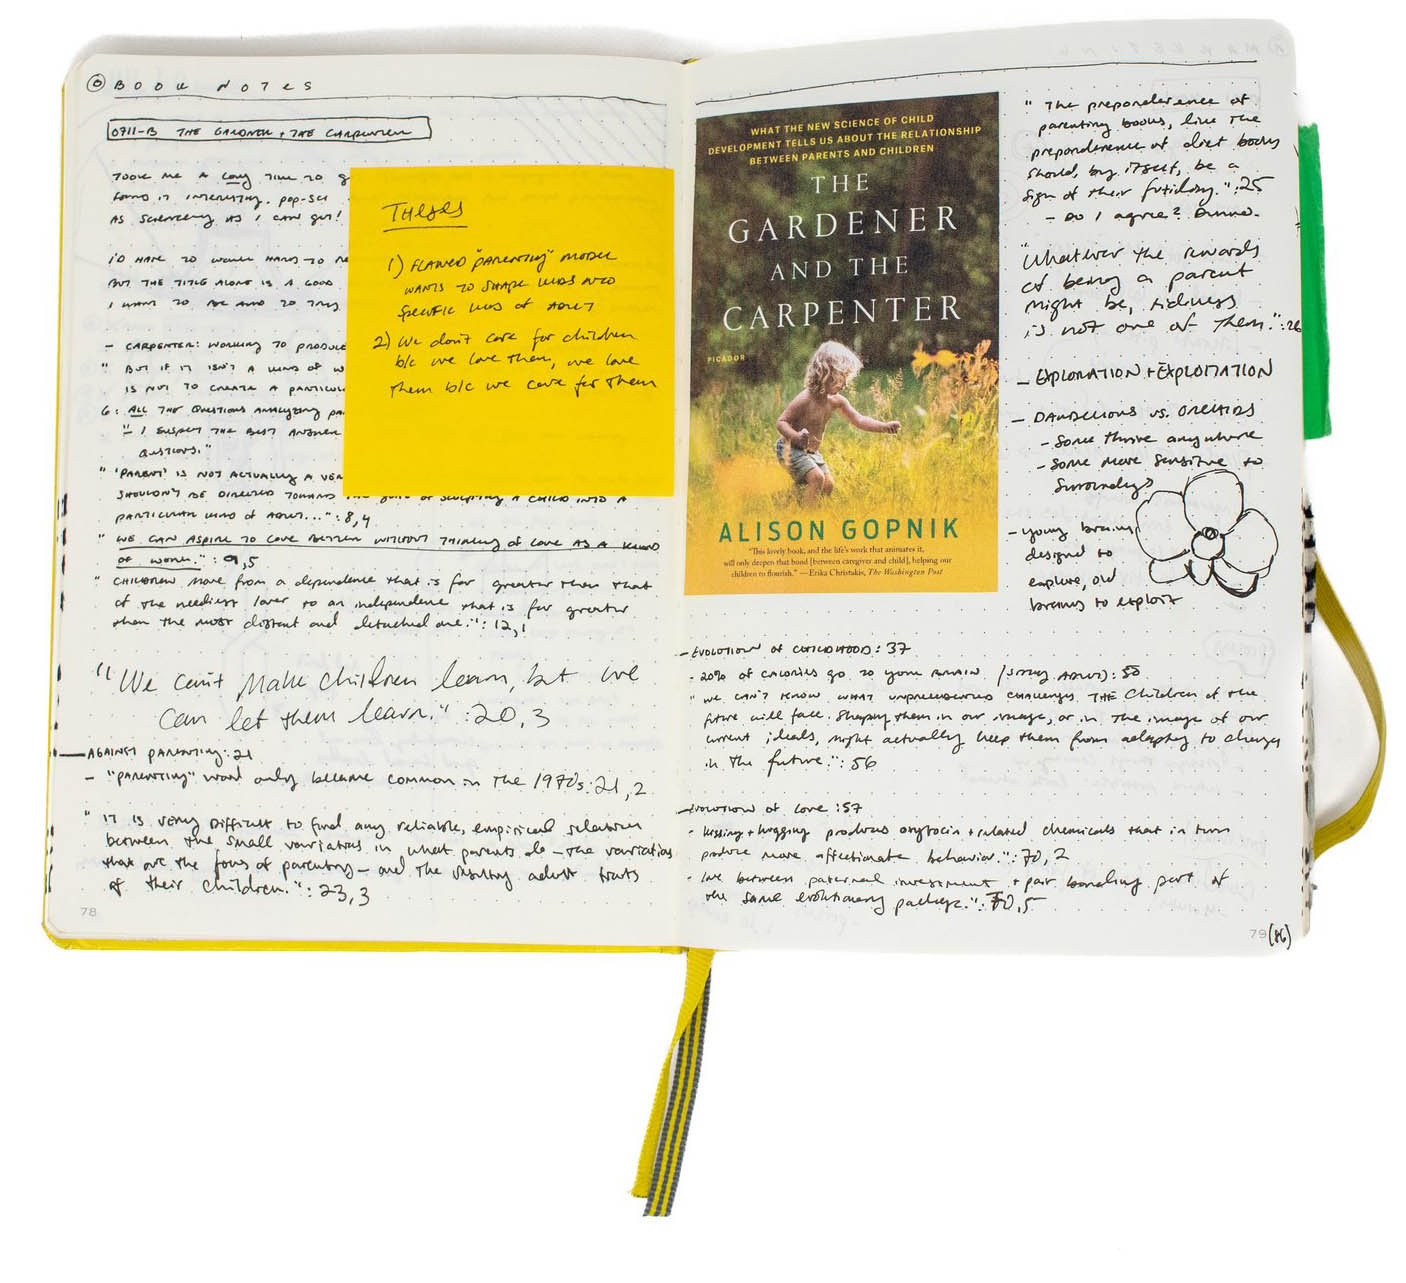 BOOK NOTES
0711-B THE GARDNER + THE CARPENTER
TOOK ME A LONG TIME TO g
found it interesting. pop-sci
AS SCIENCEY AS I CAN get!
I'D HAVE TO WORK HARD TO RE
BUT THE TITLE ALONE IS A GOOD
I WANT TO BE AND TO TRY
- CARPENTER: WORKING TO PRODUCE
" BUT IF IT ISN'T A KIND OF W
IS NOT TO CREATE A PARTICUL
6: ALL THE QUESTIONS ANALYZING PA
"- I SUSPECT THE BEST ANSWER
QUESTIONS."
" 'PARENT' IS NOT ACTUALLY A VER
SHOULDN'T BE DIRECTED TOWARD THE GOAL OF SCULPTING A CHILD INTO A
PARTICULAR KIND OF ADULT..." : 8,4
" WE CAN ASPIRE TO LOVE BETTER WITHOUT THINKING of LOVE AS A KIND
OF WORK." : 9,5
" CHILDREN move from a dependence that is far greater than that
of the neediest lover to an independence that is far greater
than the most distant and detached one." : 12,1
"We can't make children learn, but we
can let them learn." : 20,3
AGAINST PARENTING: 21
- "PARENTING" word only became common in the 1970s: 21,2
" IT IS VERY DIFFICULT to find any reliable, empirical relation
between the small variations in what parents do - the variations
that are the focus of parenting - and the resulting adult traits
of their children." : 23,3
78
THESES
1) FLAWED "PARENTING" MODEL
WANTS TO SHAPE KIDS INTO
SPECIFIC KINDS OF ADULT
2) We don't care for children
b/c we love them, we love
them b/c we care for them
WHAT THE NEW SCIENCE OF CHILD
DEVELOPMENT TELLS US ABOUT THE RELATIONSHIP
BETWEEN PARENTS AND CHILDREN
THE
GARDENER
AND THE
CARPENTER
PICADOR
ALISON GOPNIK
"This lovely book, and the life's work that animates it,
will only deepen that bond [between caregiver and child], helping our
children to flourish." —Erika Christakis, The Washington Post
" The preponderence of
parenting books, like the
preponderence of diet books
should, by itself, be a
sign of their futility." : 25
- Do I agree? Dunno.
"Whatever the rewards
of being a parent
might be, tidiness
is not one of them." : 26
- EXPLORATION + EXPLOITATION
- DANDELIONS vs. ORCHIDS
- Some thrive anywhere
- Some more sensitive to
surroundings
- young brains
designed to
explore, old
brains to exploit
- EVOLUTION of CHILDHOOD: 37
- 20% of calories go to your BRAIN : 50
" WE CAN'T KNOW WHAT UNPRECEDENTED CHALLENGES THE Children of the
future will face. Shaping them in our image, or in the image of our
current ideals, might actually keep them from adapting to changes
in the future." : 56
- EVOLUTION of LOVE: 57
- kissing + hugging produces oxytocin + related chemicals that in turn
produce more affectionate behavior." : 70,2
- between paternal investment + pair bonding part of
the same evolutionary package." : 70,5
79 (86)